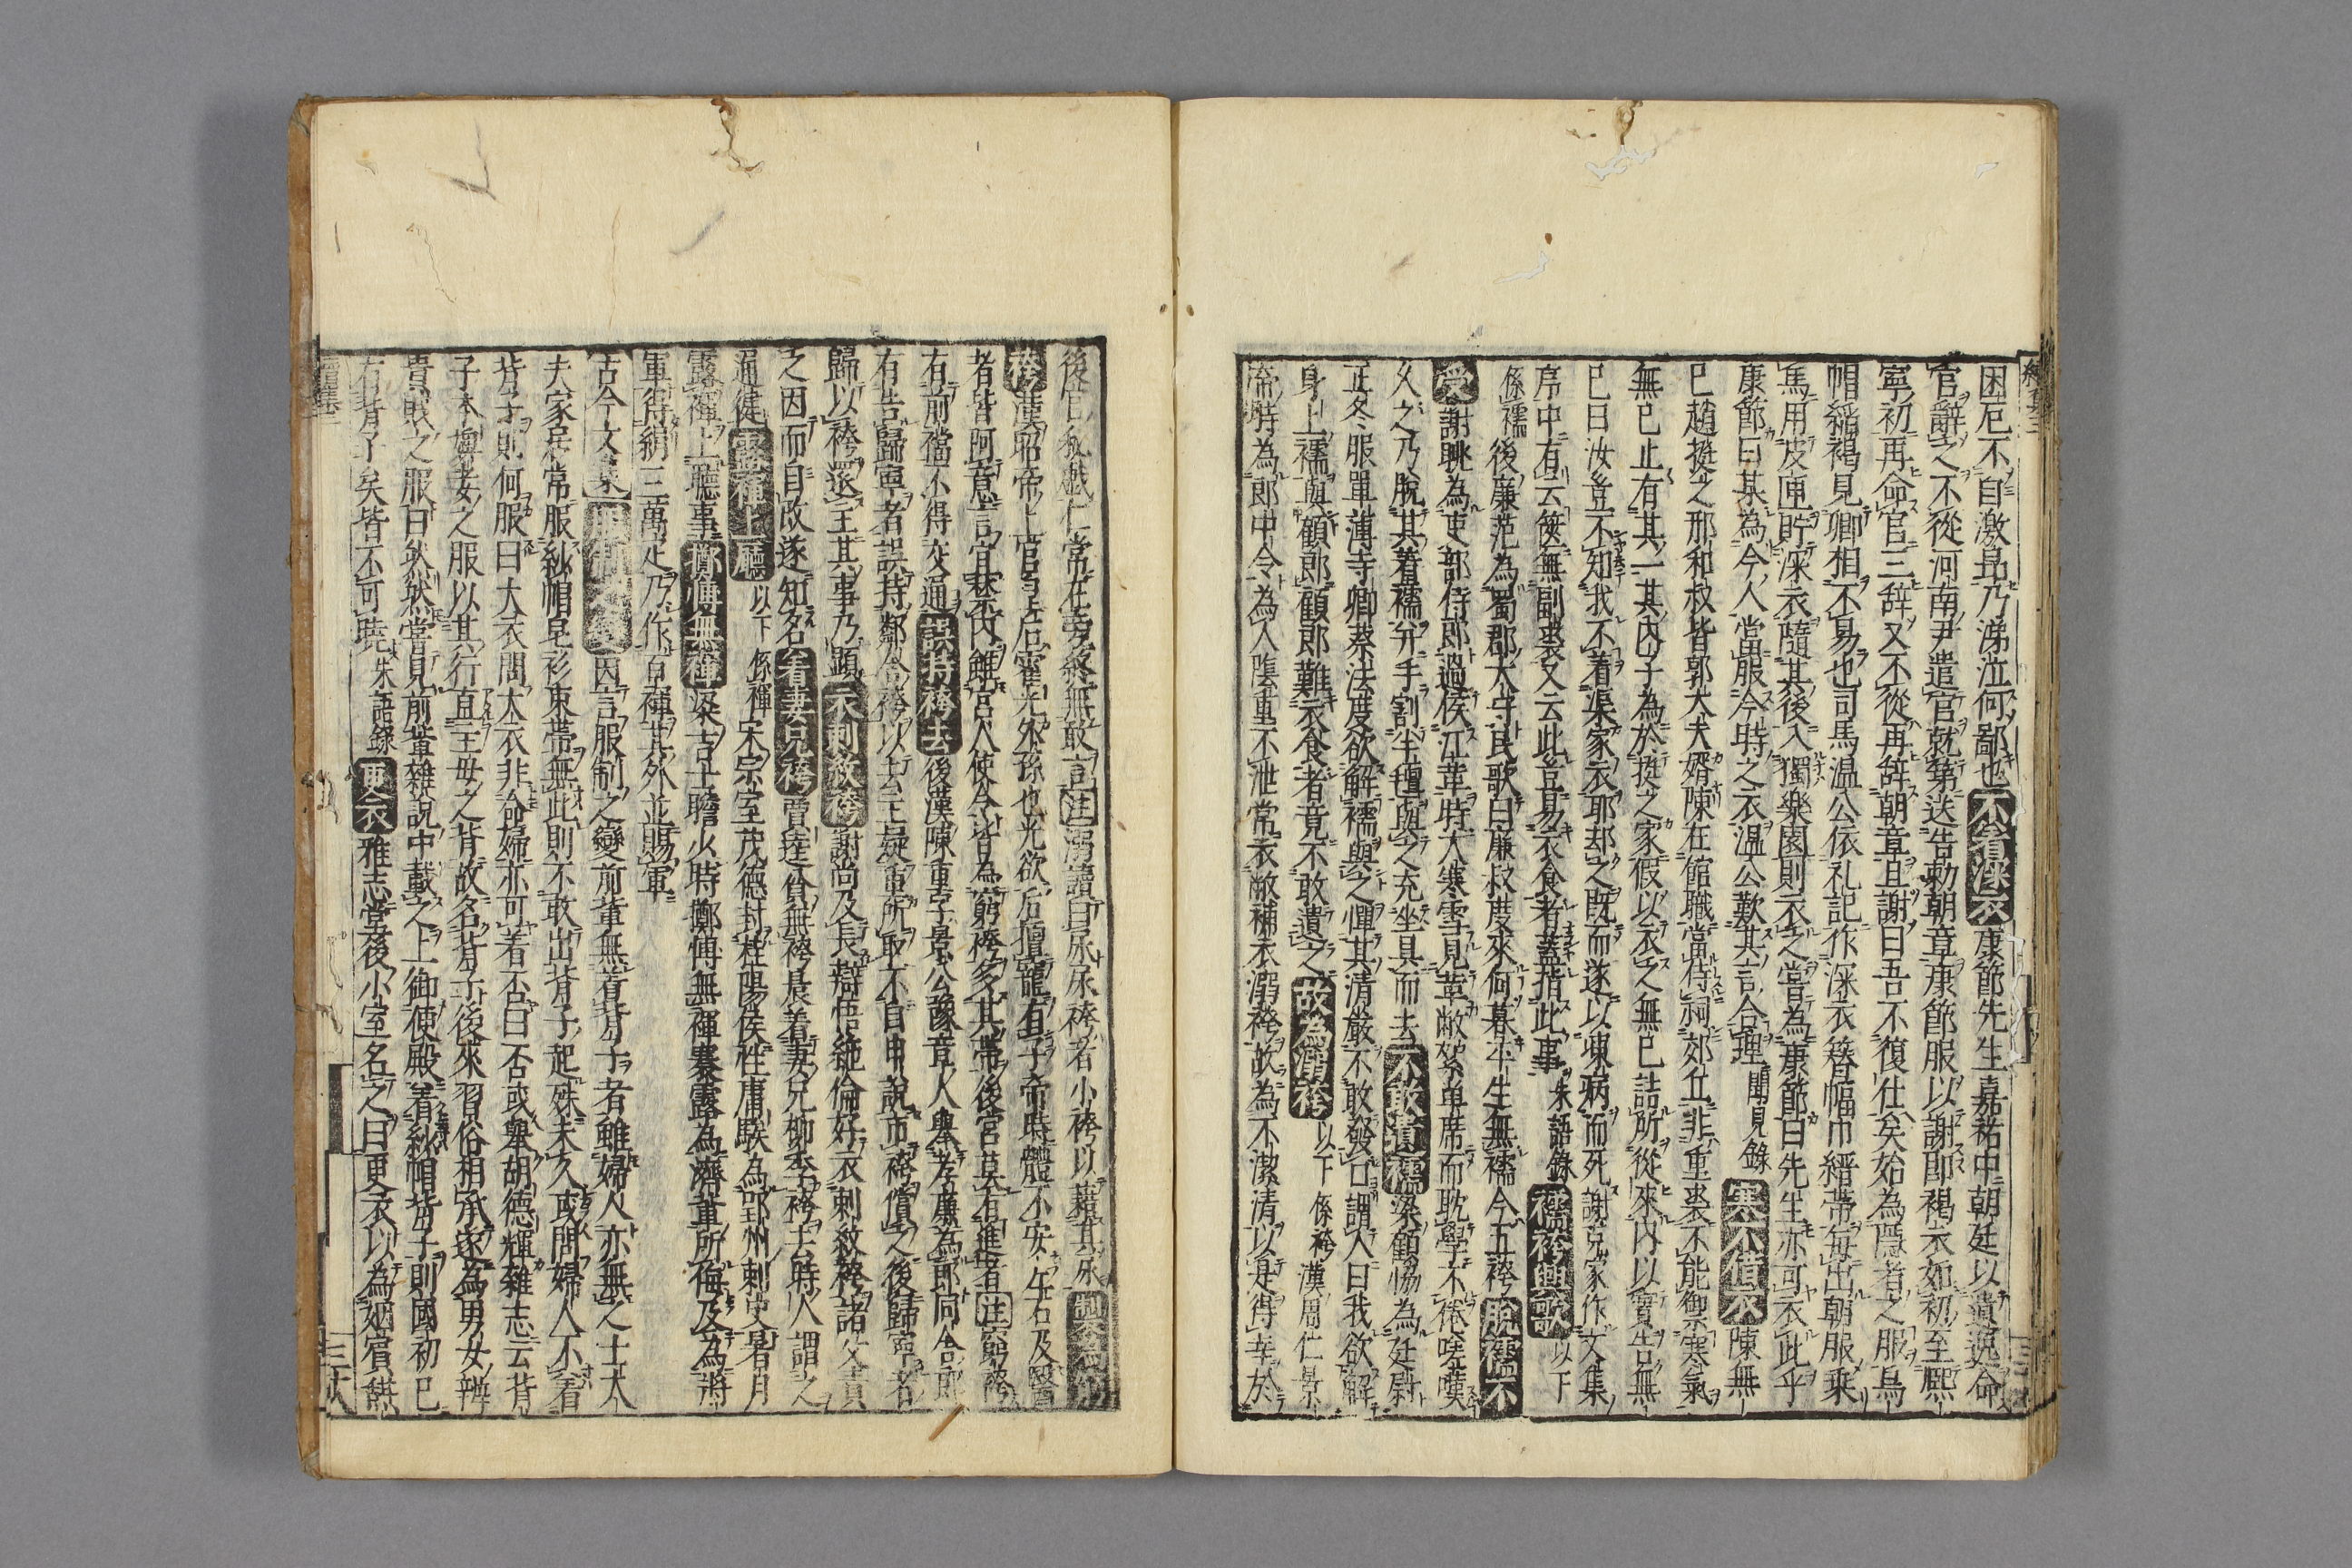 困厄不自激昻乃涕泣何鄙也不着深衣康節先生嘉祐中朝廷以遺逸命
官辭之不從河南尹遣官就第送告勅朝章康節服以謝即褐衣如初至熙
寧初再命官三辞又不從再辞朝章且謝曰吾不復仕矣始為隱者之服烏
帽縚褐見卿相不易也司馬温公依礼記作深衣簪幅巾縉帯毎出朝服乗
馬用皮匣貯深衣隨其後入獨樂園則衣之嘗為康節曰先生亦可衣此乎
康節曰某為今人當服今時之衣温公歎其言合理聞見錄寒不值衣陳無
已趙挺之邢和叔皆郭大夫婿陳在館職當侍祠郊丘非重裘不能禦寒氣
無已止有其一其内子為於挺之家假以衣之無已詰所從來内以實告無
已曰汝豈不知我不着渠家衣耶却之既而遂以凍病而死謝克家作文集
序中有云篋無副裘又云此豈易衣食者蓋指此事朱語錄襦袴興歌以下
係襦後廉范為蜀郡大守民歌曰廉叔度來何暮平生無襦今五袴脫襦不
受謝眺為吏部侍郎過侯江革時大寒雪見革敝絮单席而耽學不倦嗟嘆
久之乃脫其着襦并手割半氊與之充坐具而去不敢遺襦梁顧協為廷尉
正冬服單薄寺卿蔡法度欲解襦與之憚其清厳不敢發口謂人曰我欲解
身上襦與顧郎顧郎難衣食者竟不敢遺之故為溺袴以下係袴漢周仁景
帝時為郎中令為人陰重不泄常衣敝補衣溺袴故為不潔清以是得幸於
後宮秘戯仁常在旁終無敢言注溺讀曰尿尿袴者小袴以藉其尿製為窮
袴漢昭帝上官皇后霍光外孫也光欲后擅寵有子帝時體不安左右及醫
者皆阿意言宜禁内雖宮人使令皆為窮袴多其帯後宮莫有進者注窮袴
有前襠不得交通誤持袴去後漢陳重字景公豫章人舉孝廉為郎同舍郎
有告歸寧者誤持鄰舍袴以去主疑重所取不自申說市袴償之後歸寧者
歸以袴還主其事乃顕衣刺紋袴謝尚及長辯悟絶倫好衣刺紋袴諸父責
之因而自改遂知名着妻兄袴賈逵貧無袴晨着妻兄柳孚袴去時人謂之
通健露褌上廳以下係褌宋宗室茂德封桂陽侯性庸騃為郢州刺史暑月
露褌上聽事擲傅無褌梁吉士瞻少時擲傅無褌褰露為儕輩所侮及為將
軍得絹三萬疋乃作百褌其外並賜軍
古今文集因言服制之變前輩無着背子者雖婦人亦無之士大
夫家居常服紗帽皂衫束帯無此則不敢出背子起殊未久或問婦人不着
背子則何服曰大衣問大衣非命婦亦可着否曰否或舉胡德輝雜志云背
子本婢妾之服以其行直主毋之背故名背子後來習俗相承遂為男女辨
貴賎之服曰然然嘗見前輩雜說中載之上御便殿着紗帽背子則國初已
有背子矣皆不可曉朱語錄更衣雅志堂後小室名之曰更衣以為姻賔